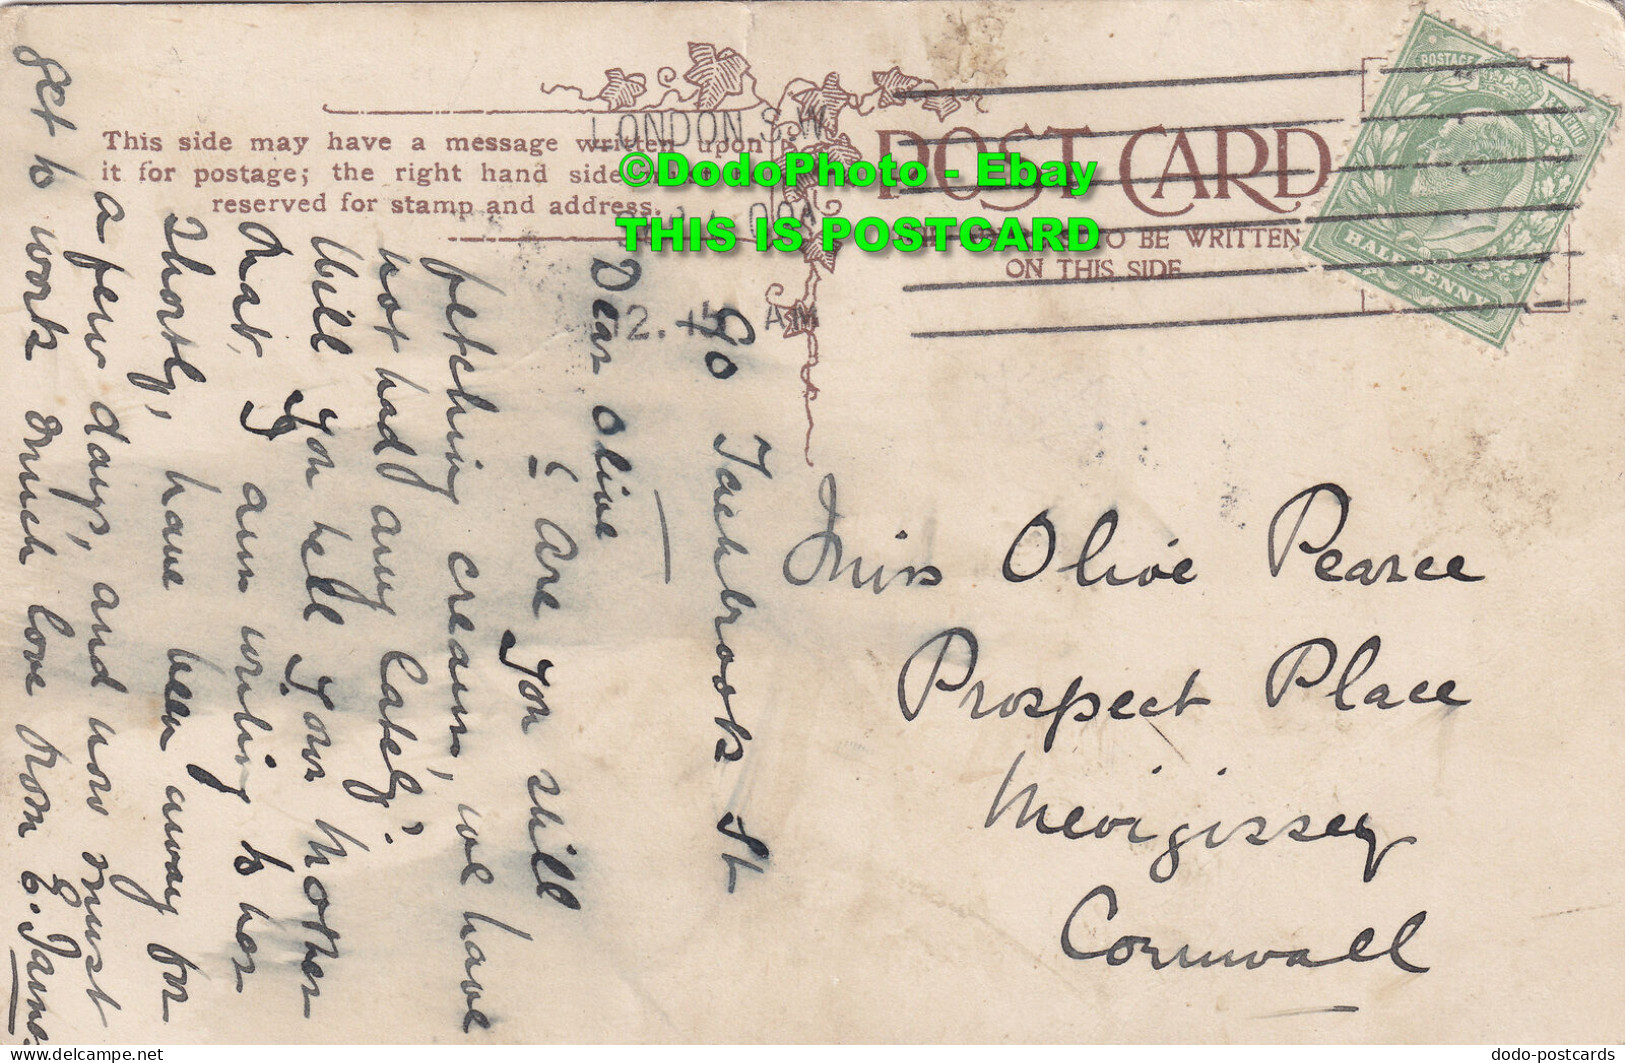 This side may have a message written upon
it for postage; the right hand side
reserved for stamp and address.
POST CARD
TO BE WRITTEN
ON THIS SIDE
LONDON. S.W.
12.15 AM
POSTAGE REVENUE
HALFPENNY
©DodoPhoto - Ebay
THIS IS POSTCARD
90 Tachbrook St
Dear Olive
Are you still
fetching cream, we have
not had any lately.
Will you tell your Mother
that I am writing to her
shortly, have been away for
a few days, and now must
get to work much love from E.
Miss Olive Pearce
Prospect Place
Mevigissey
Cornwall
dodo-postcards
delcampe.net